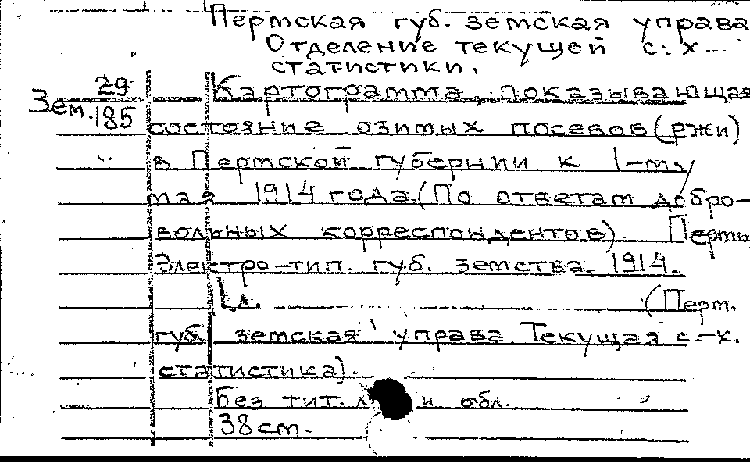 Пермская губ. земская управа
Отделение текущей с.-х.
статистики.
Зем. 29/185
Картограмма, показывающая
состояние озимых посевов (ржи)
в Пермской губернии к 1-му
мая 1914 года. (По ответам добро-
вольных корреспондентов). Пермь,
Электро-тип. губ. земства. 1914.
(Перм.
губ. земская управа. Текущая с.-х.
статистика).
Без тит. и обл.
38 см.